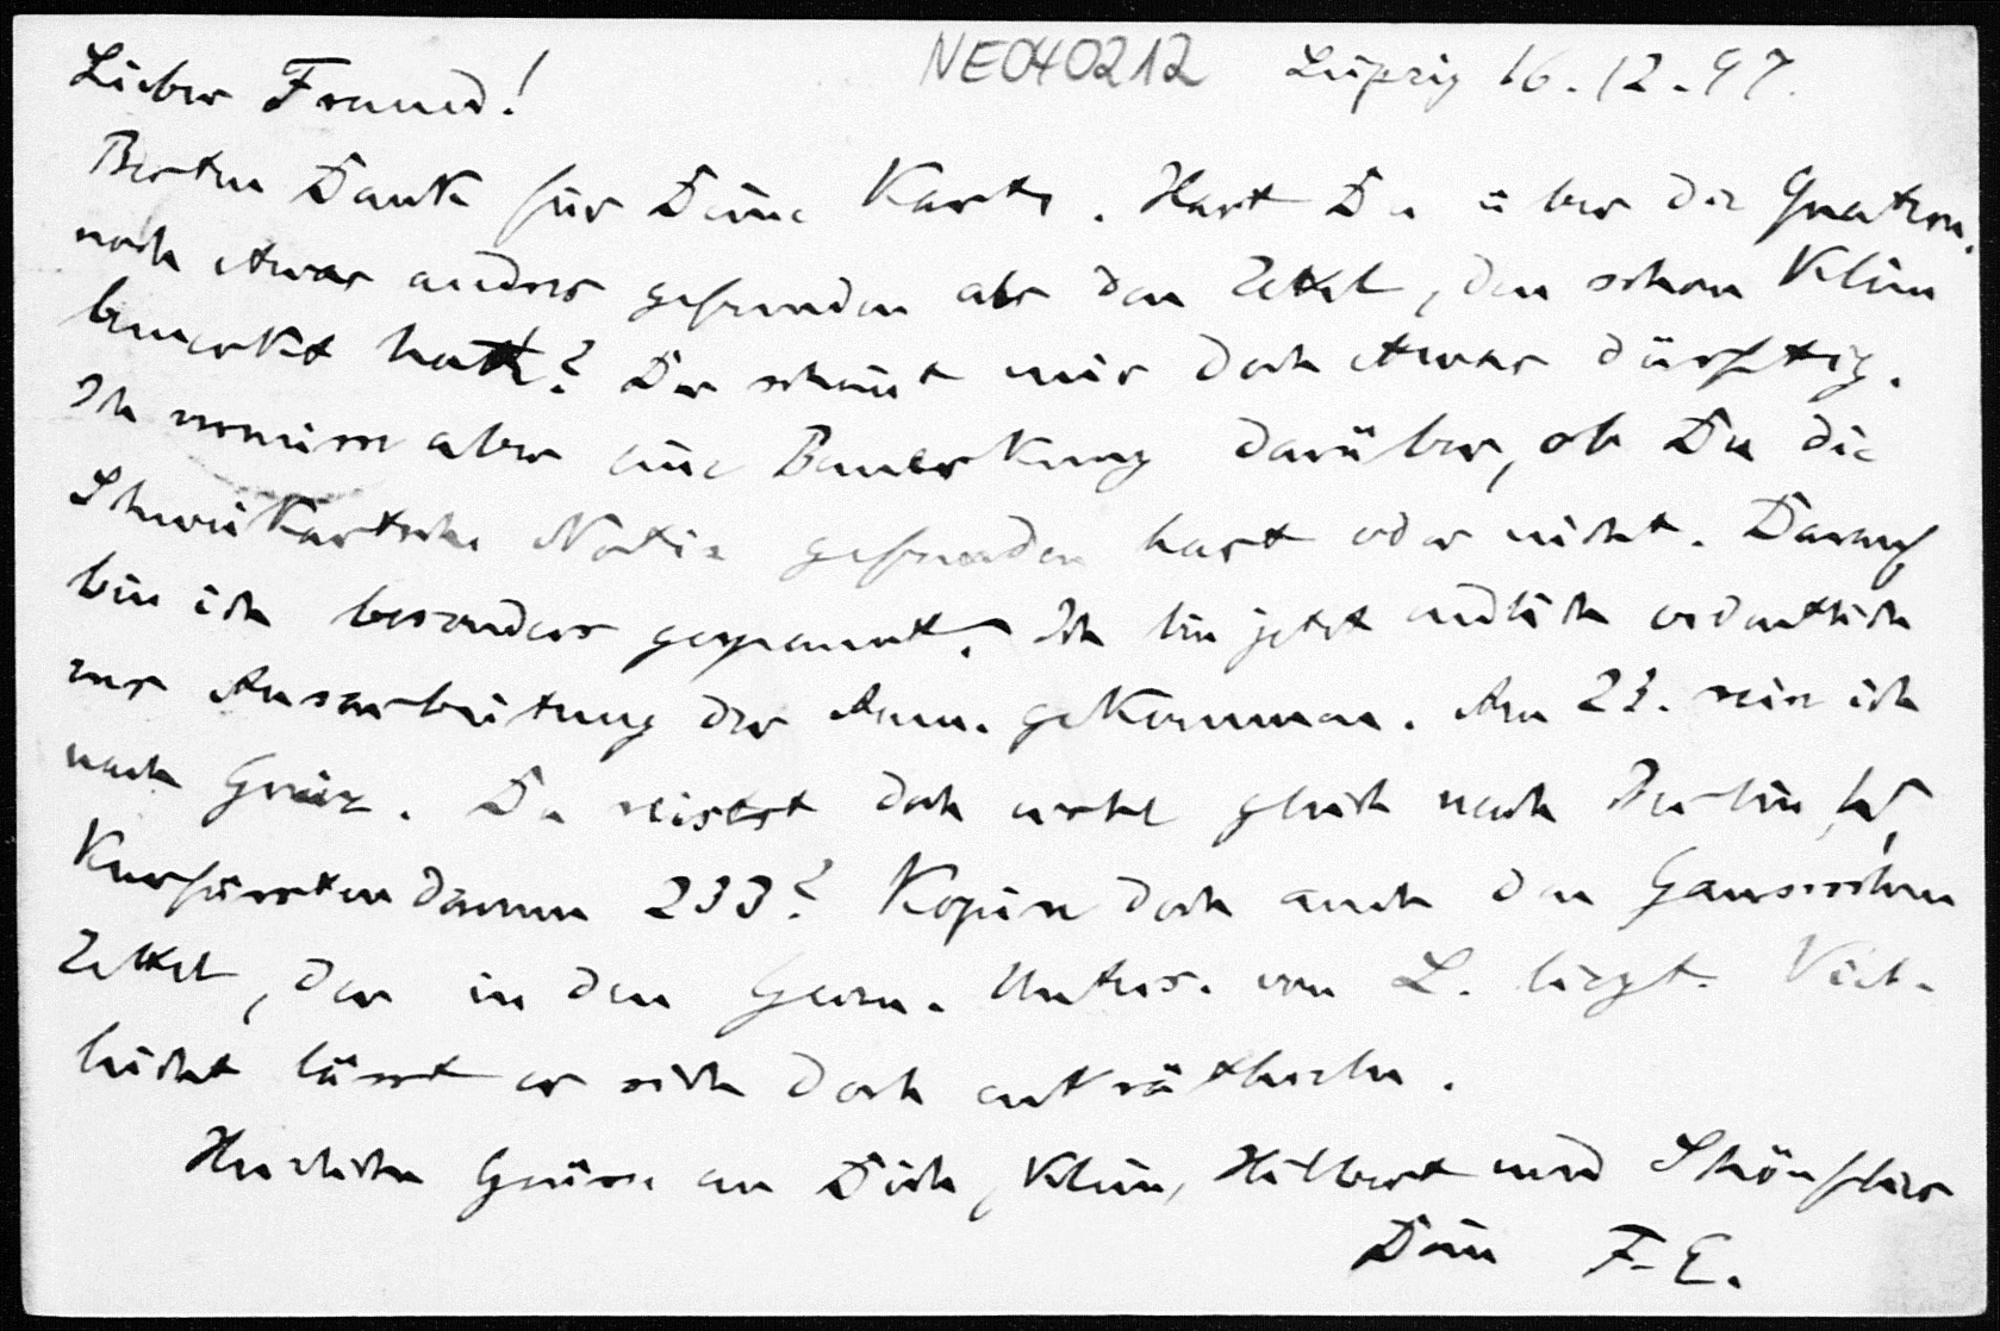 NE040212 Leipzig 16.12.97.
Lieber Freund!
Besten Dank für Deine Karte. Hast Du über die Quatern.
noch etwas andres gefunden als den Zettel, den schon Klein
bemerkt hatte? Der scheint mir doch etwas dürftig.
Ich vermisse aber eine Bemerkung darüber, ob Du die
Schweikartsche Notiz gefunden hast oder nicht. Darauf
bin ich besonders gespannt. Ich bin jetzt endlich ordentlich
zur Ausarbeitung der Anm. gekommen. Am 23. reise ich
nach Greiz. Du reisest doch wohl gleich nach Berlin, W,
Kurfürstendamm 233? Kopire doch auch den Gaussischen
Zettel, der in den Geom. Unters. von L. liegt. Viel-
leicht lässt er sich doch enträthseln.
Herzliche Grüsse an Dich, Klein, Hilbert und Schönflies
Dein F. E.